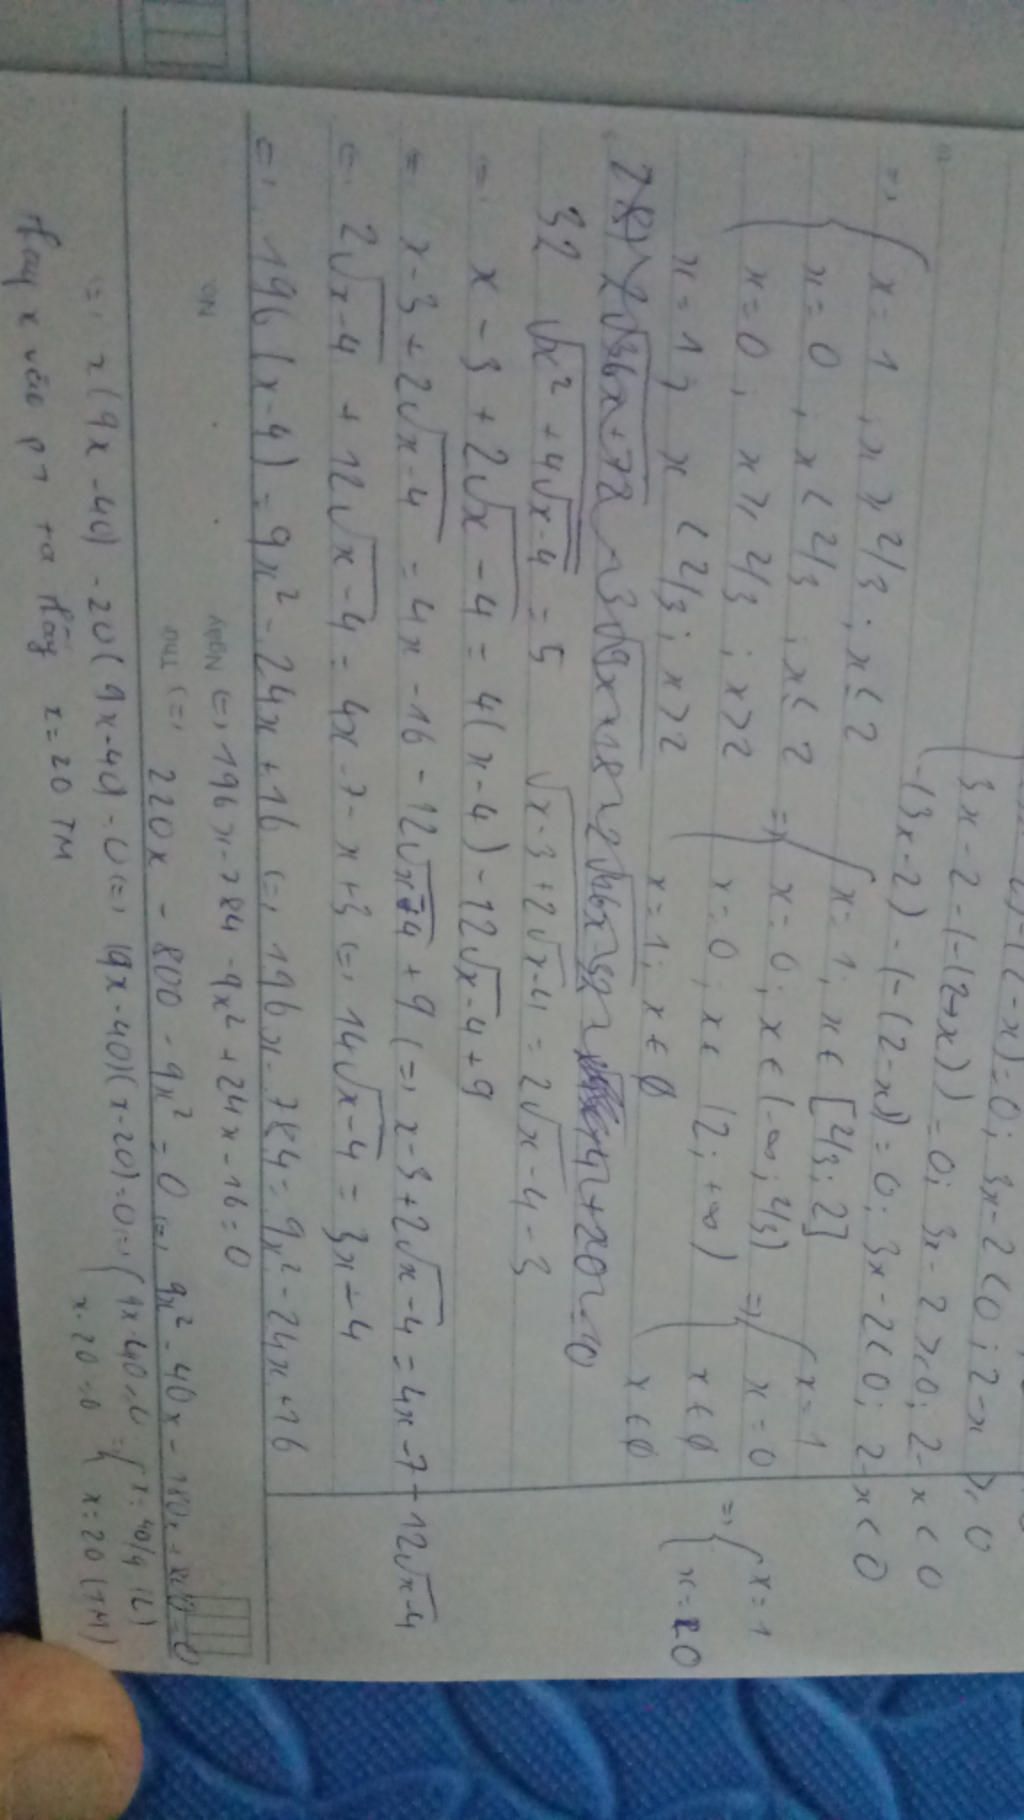 2-(2-x)=0; 3x-2<0; 2-x≥0
3x-2-(-(2-x))=0; 3x-2≥0; 2-x<0
-(3x-2)-(-(2-x))=0; 3x-2<0; 2-x<0
=> x=1, x≥2/3; x≤2
x=0, x<2/3; x≤2
x=0, x≥2/3; x>2
x=1; x<2/3; x>2
=> x=1, x∈[2/3;2]
x=0; x∈(-∞;2/3)
x=0; x∈(2;+∞)
x=1; x∈∅
=> x=1
x=0
x∈∅
x∈∅
=> x=1
x=0
32 √x²+4√x-4 = 5 √x-3+2√x-4 = 2√x-4-3
=> x-3+2√x-4 = 4(x-4)-12√x-4+9
= x-3+2√x-4 = 4x-16-12√x-4+9 (=, x-3+2√x-4 = 4x-7-12√x-4
(=. 2√x-4+12√x-4 = 4x-7-x+3 (=, 14√x-4 = 3x-4
(=, 196(x-4) = 9x²-24x+16 (=, 196x-784 = 9x²-24x+16
No.
Ngày (=, 196x-784-9x²+24x-16=0
Thứ (=, 220x-800-9x²=0 (=, 9x²-40x-180x+800=0
(=, x(9x-40)-20(9x-40)=0 (=, (9x-40)(x-20)=0 (=, 9x-40=0 => x=40/9 (L)
x-20=0 x=20 (TM)
thay x vào pt ta thấy x=20 TM